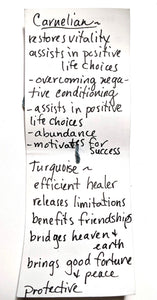 Carnelian ~
restores vitality
assists in positive
life choices
- overcoming nega-
tive conditioning
- assists in positive
life choices
- abundance
- motivates for
success
Turquoise ~
efficient healer
releases limitations
benefits friendships
bridges heaven &
earth
brings good fortune
& peace
protective